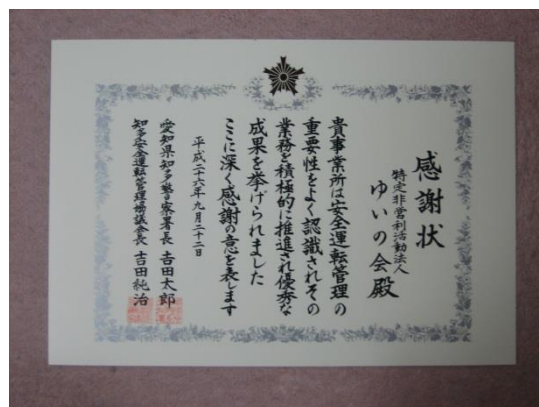 感謝状
特定非営利活動法人
ゆいの会殿
貴事業所は安全運転管理の
重要性をよく認識されその
業務を積極的に推進され優秀な
成果を挙げられました
ここに深く感謝の意を表します
平成二十六年九月二十二日
愛知県知多警察署長 吉田太郎
知多安全運転管理協議会長 吉田純治